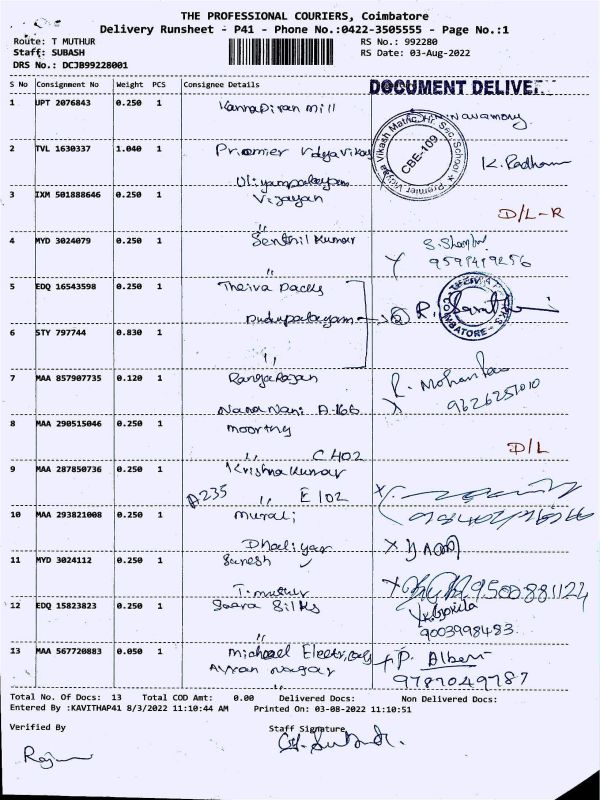 THE PROFESSIONAL COURIERS, Coimbatore
Delivery Runsheet - P41 - Phone No.:0422-3505555 - Page No.:1
Route: T MUTHUR
RS No.: 992280
Staff: SUBASH
RS Date: 03-Aug-2022
DRS No.: DCJB99228001
S No Consignment No Weight PCS Consignee Details
DOCUMENT DELIVE
1 UPT 2076843 0.250 1 Kannapiran mill
Navamony
2 TVL 1630337 1.040 1 Premier Vidya Vikas
Uliyampalayam
Premier Vidya Vikash Matric. Hr. Sec. School
CBE-109
K. Padham
3 IXM 501888646 0.250 1 Vijayan
"
D/L-R
4 MYD 3024079 0.250 1 Senthil Kumar
"
9591419256
5 EDQ 16543598 0.250 1 Theiva Packs
Pudupalayam
COIMBATORE
6 STY 797744 0.830 1
"
7 MAA 857907735 0.120 1 Rangarajan
Nana Nani A-166
R. Mohan
9626251010
8 MAA 290515046 0.250 1 moorthy
" C402
D/L
9 MAA 287850736 0.250 1 Krishna Kumar
A235 " E102
10 MAA 293821008 0.250 1 murali
Dhaliyar
11 MYD 3024112 0.250 1 Suresh
T. muthur
9500881122
12 EDQ 15823823 0.250 1 Saara Silks
"
9003998483
13 MAA 567720883 0.050 1 michael Electricals
Ayyan nagar
P. Albert
9787049787
Total No. Of Docs: 13 Total COD Amt: 0.00 Delivered Docs: Non Delivered Docs:
Entered By :KAVITHAP41 8/3/2022 11:10:44 AM Printed On: 03-08-2022 11:10:51
Verified By
Staff Signature